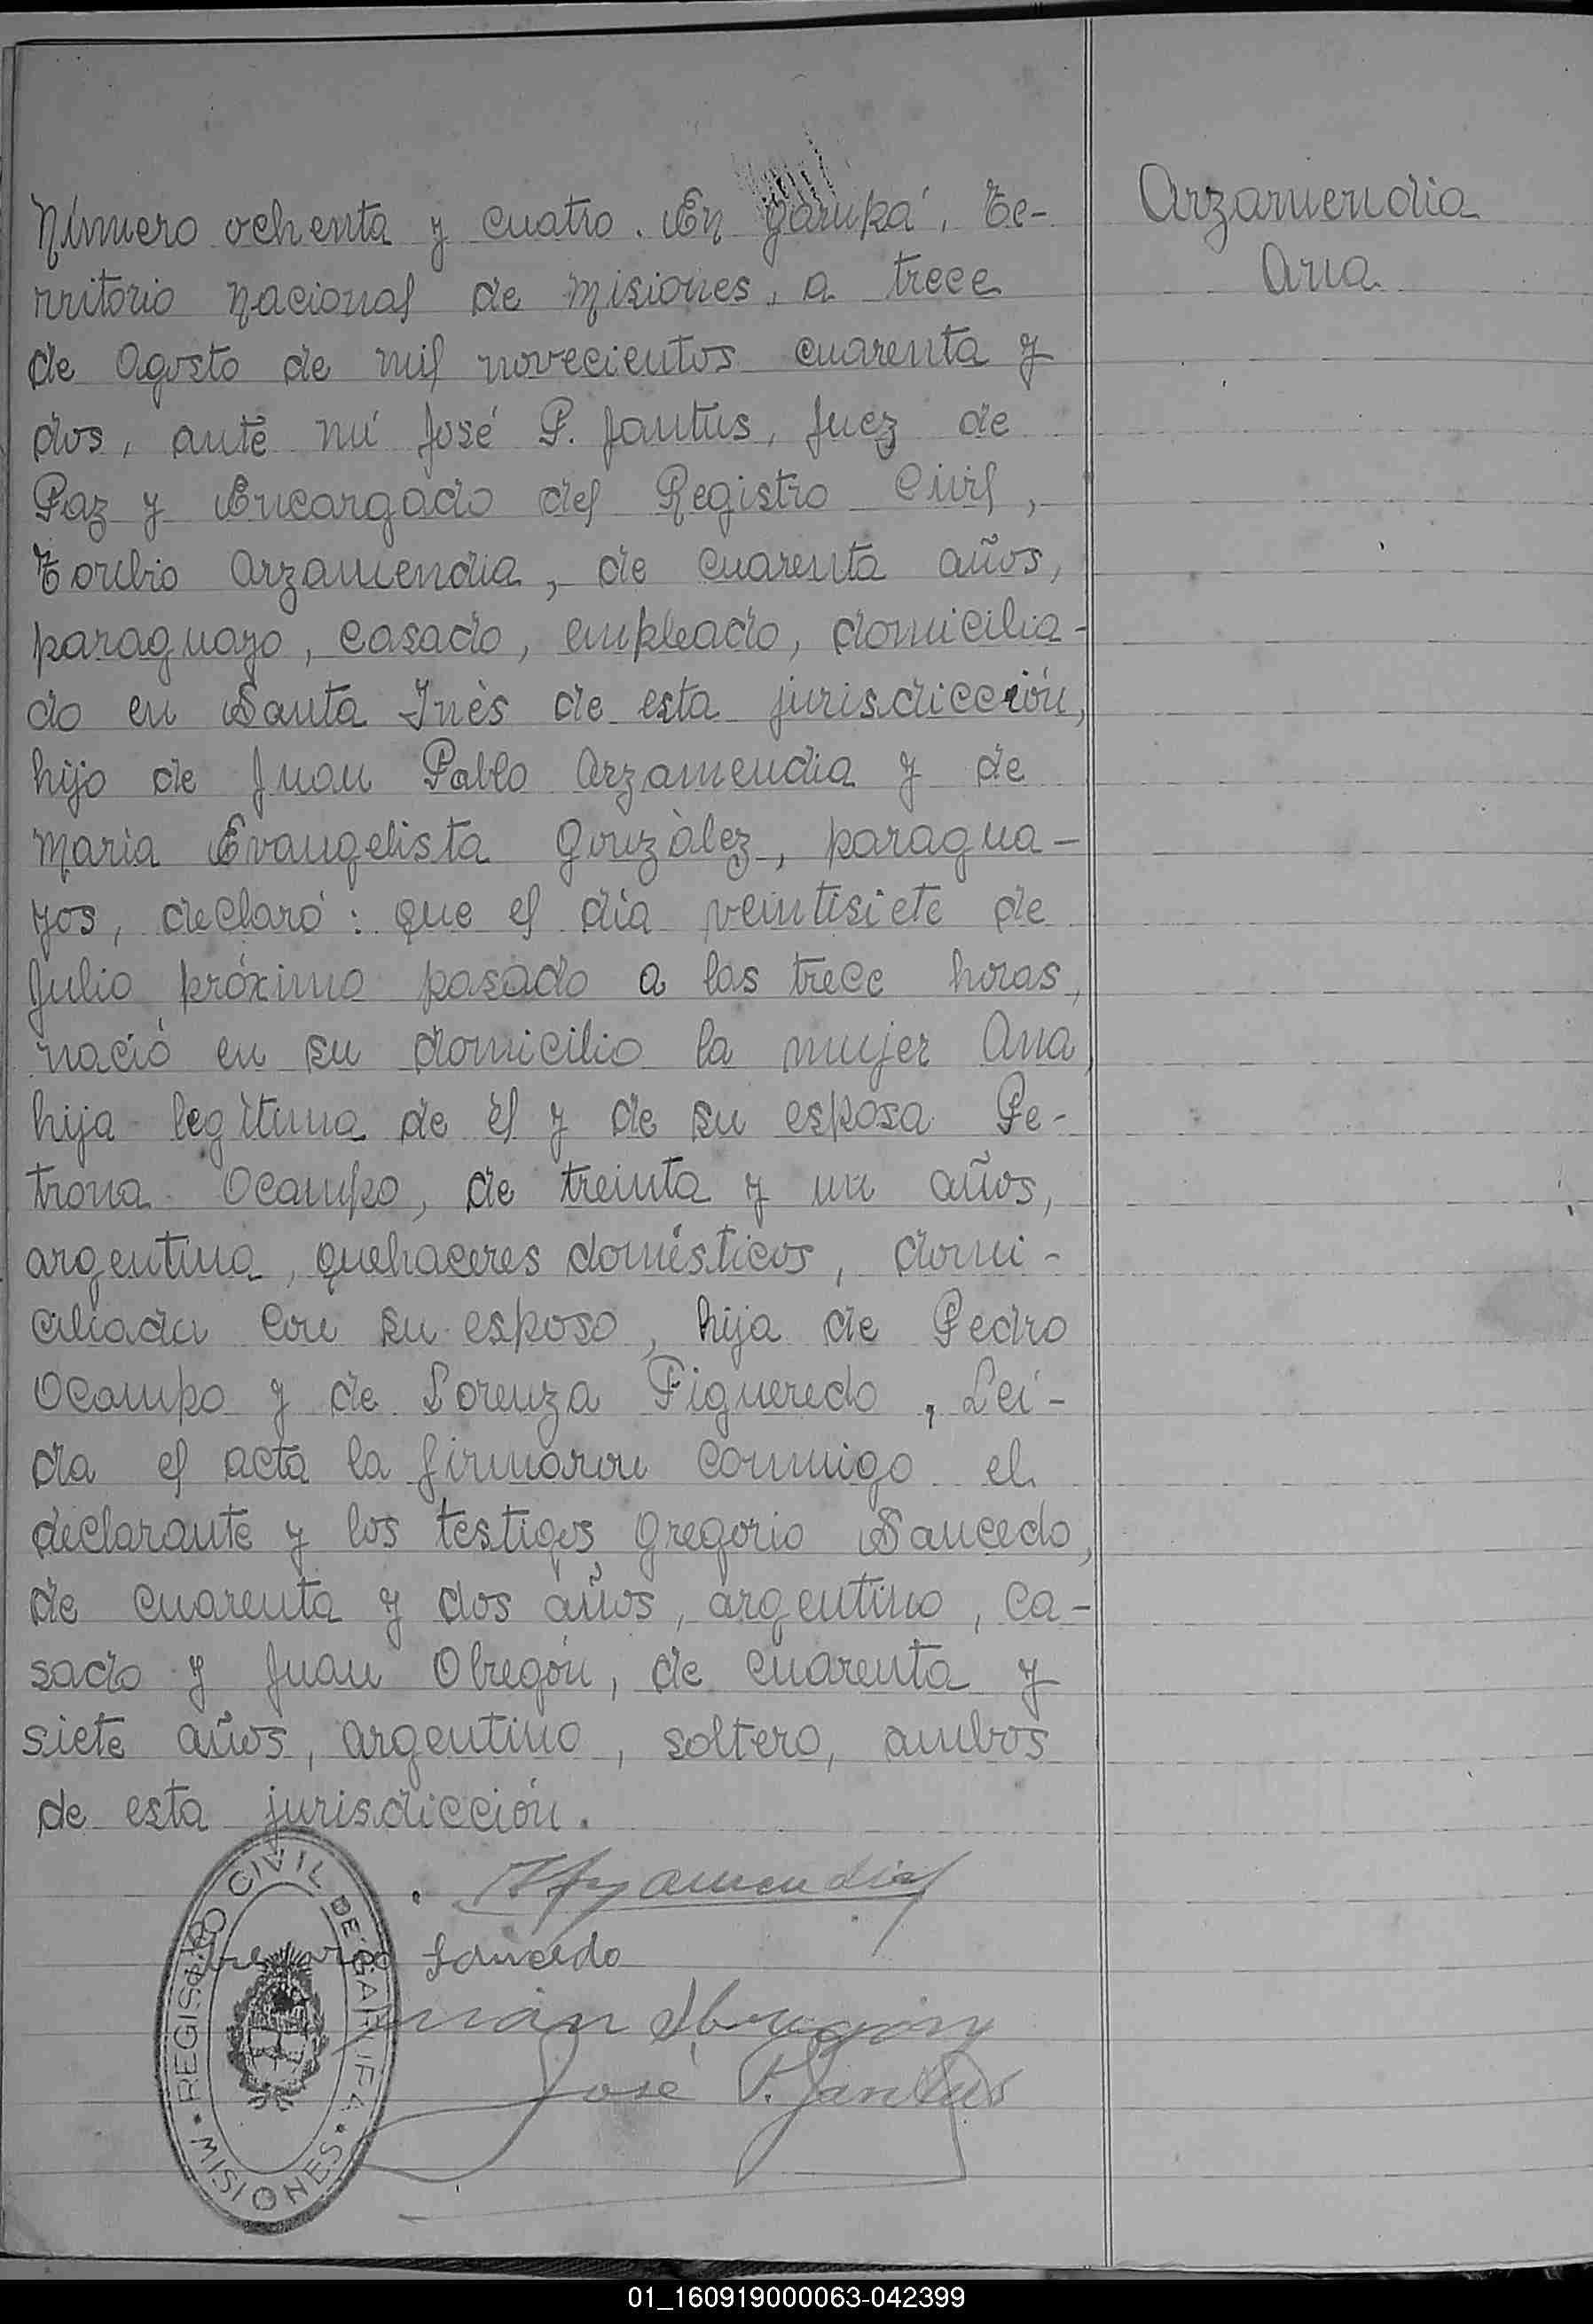 Número ochenta y cuatro. En Garupá, Te-
rritorio Nacional de Misiones, a trece
de Agosto de mil novecientos cuarenta y
dos, ante mí José P. Jantus, Juez de
Paz y Encargado del Registro Civil,
Toribio Arzamendia, de cuarenta años,
paraguayo, casado, empleado, domicilia-
do en Santa Inès de esta jurisdicción,
hijo de Juan Pablo Arzamendia y de
Maria Evangelista Gonzàlez, paragua-
yos, declaró: que el día veintisiete de
Julio próximo pasado a las trece horas,
nació en su domicilio la mujer Ana,
hija legítima de él y de su esposa Pe-
trona Ocampo, de treinta y un años,
argentina, quehaceres domésticos, domi-
ciliada con su esposo, hija de Pedro
Ocampo y de Lorenza Figueredo, Leí-
da el acta la firmaron conmigo el
declarante y los testigos, Gregorio Saucedo,
de cuarenta y dos años, argentino, ca-
sado y Juan Obregón, de cuarenta y
siete años, argentino, soltero, ambos
de esta jurisdicción.
Arzamendia
Ana
Arzamendia
Saucedo
Juan Obregón
José P. Jantus
REGISTRO CIVIL DE GARUPA
MISIONES
01_160919000063-042399